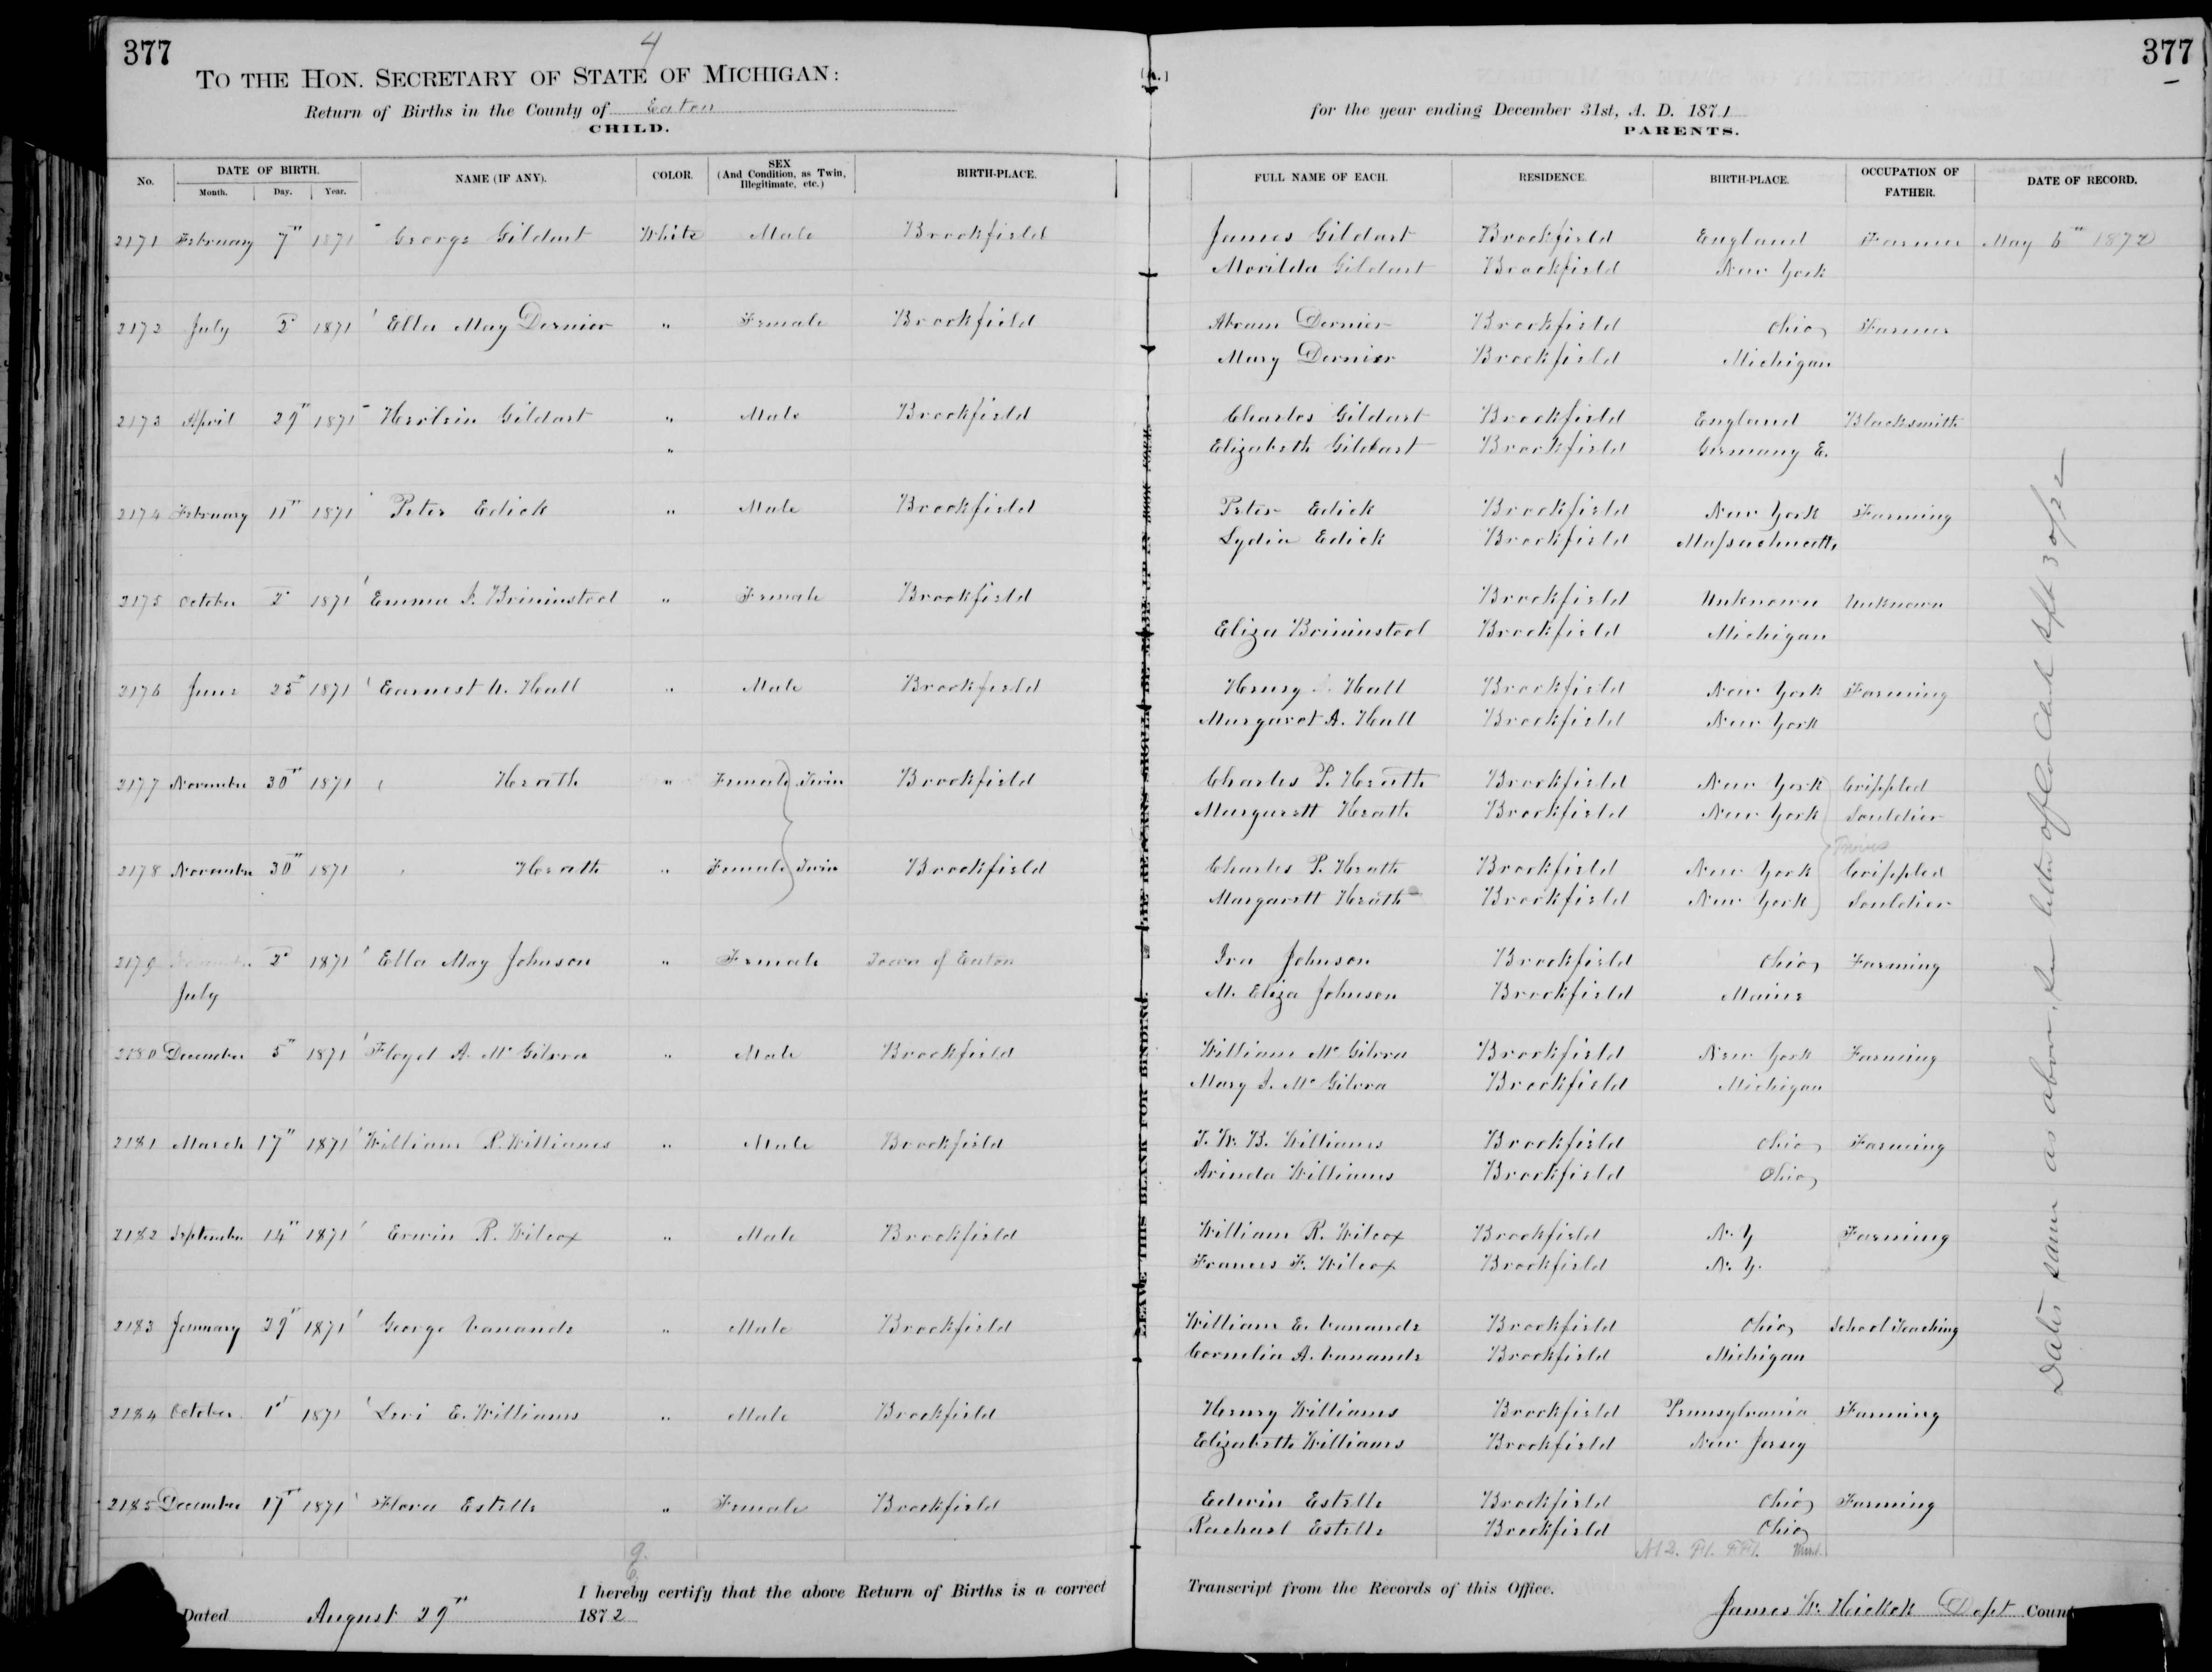 377
4
TO THE HON. SECRETARY OF STATE OF MICHIGAN:
Return of Births in the County of Eaton
CHILD.
[A.]
377
for the year ending December 31st, A. D. 1871
PARENTS.
No. DATE OF BIRTH. Month. Day. Year. NAME (IF ANY). COLOR. SEX (And Condition, as Twin, Illegitimate, etc.) BIRTH-PLACE. FULL NAME OF EACH. RESIDENCE. BIRTH-PLACE. OCCUPATION OF FATHER. DATE OF RECORD.
2171 February 7" 1871 George Gildart White Male Brookfield James Gildart Brookfield England Farmer May 6" 1872
Morilda Gildart Brookfield New York
2172 July 2" 1871 Ella May Dernier " Female Brookfield Abram Dernier Brookfield Ohio Farmer
Mary Dernier Brookfield Michigan
2173 April 29" 1871 Gildart " Male Brookfield Charles Gildart Brookfield England Blacksmith
" Elizabeth Gildart Brookfield Germany E.
2174 February 11" 1871 Peter Edick " Male Brookfield Peter Edick Brookfield New York Farming
Lydia Edick Brookfield Massachusetts
2175 October 2" 1871 Emma J. Brininstool " Female Brookfield Brookfield Unknown Unknown
Eliza Brininstool Brookfield Michigan
2176 June 25" 1871 Earnest W. Hall " Male Brookfield Henry Hall Brookfield New York Farming
Margaret A. Hall Brookfield New York
2177 November 30" 1871 Herath " Female Twin Brookfield Charles P. Herath Brookfield New York Crippled
Margarett Herath Brookfield New York Souldier
2178 November 30" 1871 Herath " Female Twin Brookfield Charles P. Herath Brookfield New York Crippled
Margarett Herath Brookfield New York Souldier
2179 2" 1871 Ella May Johnson " Female Town of Eaton Ira Johnson Brookfield Ohio Farming
July M. Eliza Johnson Brookfield Maine
2180 December 5" 1871 Floyd A. McGilvra " Male Brookfield William McGilvra Brookfield New York Farming
Mary J. McGilvra Brookfield Michigan
2181 March 17" 1871 William R. Williams " Male Brookfield T. W. B. Williams Brookfield Ohio Farming
Arinda Williams Brookfield Ohio
2182 September 14" 1871 Erwin R. Wilcox " Male Brookfield William R. Wilcox Brookfield N. Y Farming
Frances F. Wilcox Brookfield N. Y.
2183 January 29" 1871 George Vanande " Male Brookfield William E. Vanande Brookfield Ohio School Teaching
Cornelia A. Vanande Brookfield Michigan
2184 October 1" 1871 Levi E. Williams " Male Brookfield Henry Williams Brookfield Pennsylvania Farming
Elizabeth Williams Brookfield New Jersey
2185 December 17" 1871 Flora Estelle " Female Brookfield Edwin Estelle Brookfield Ohio Farming
Rachael Estelle Brookfield Ohio
Dates same as above, see letter of Co Clerk Sept 30/72
LEAVE THIS BLANK FOR BINDING.
THE RETURNS SHOULD BE MADE UP IN BOOK FORM.
I hereby certify that the above Return of Births is a correct Transcript from the Records of this Office.
Dated August 29" 1872 James W. Hickok Dept Count